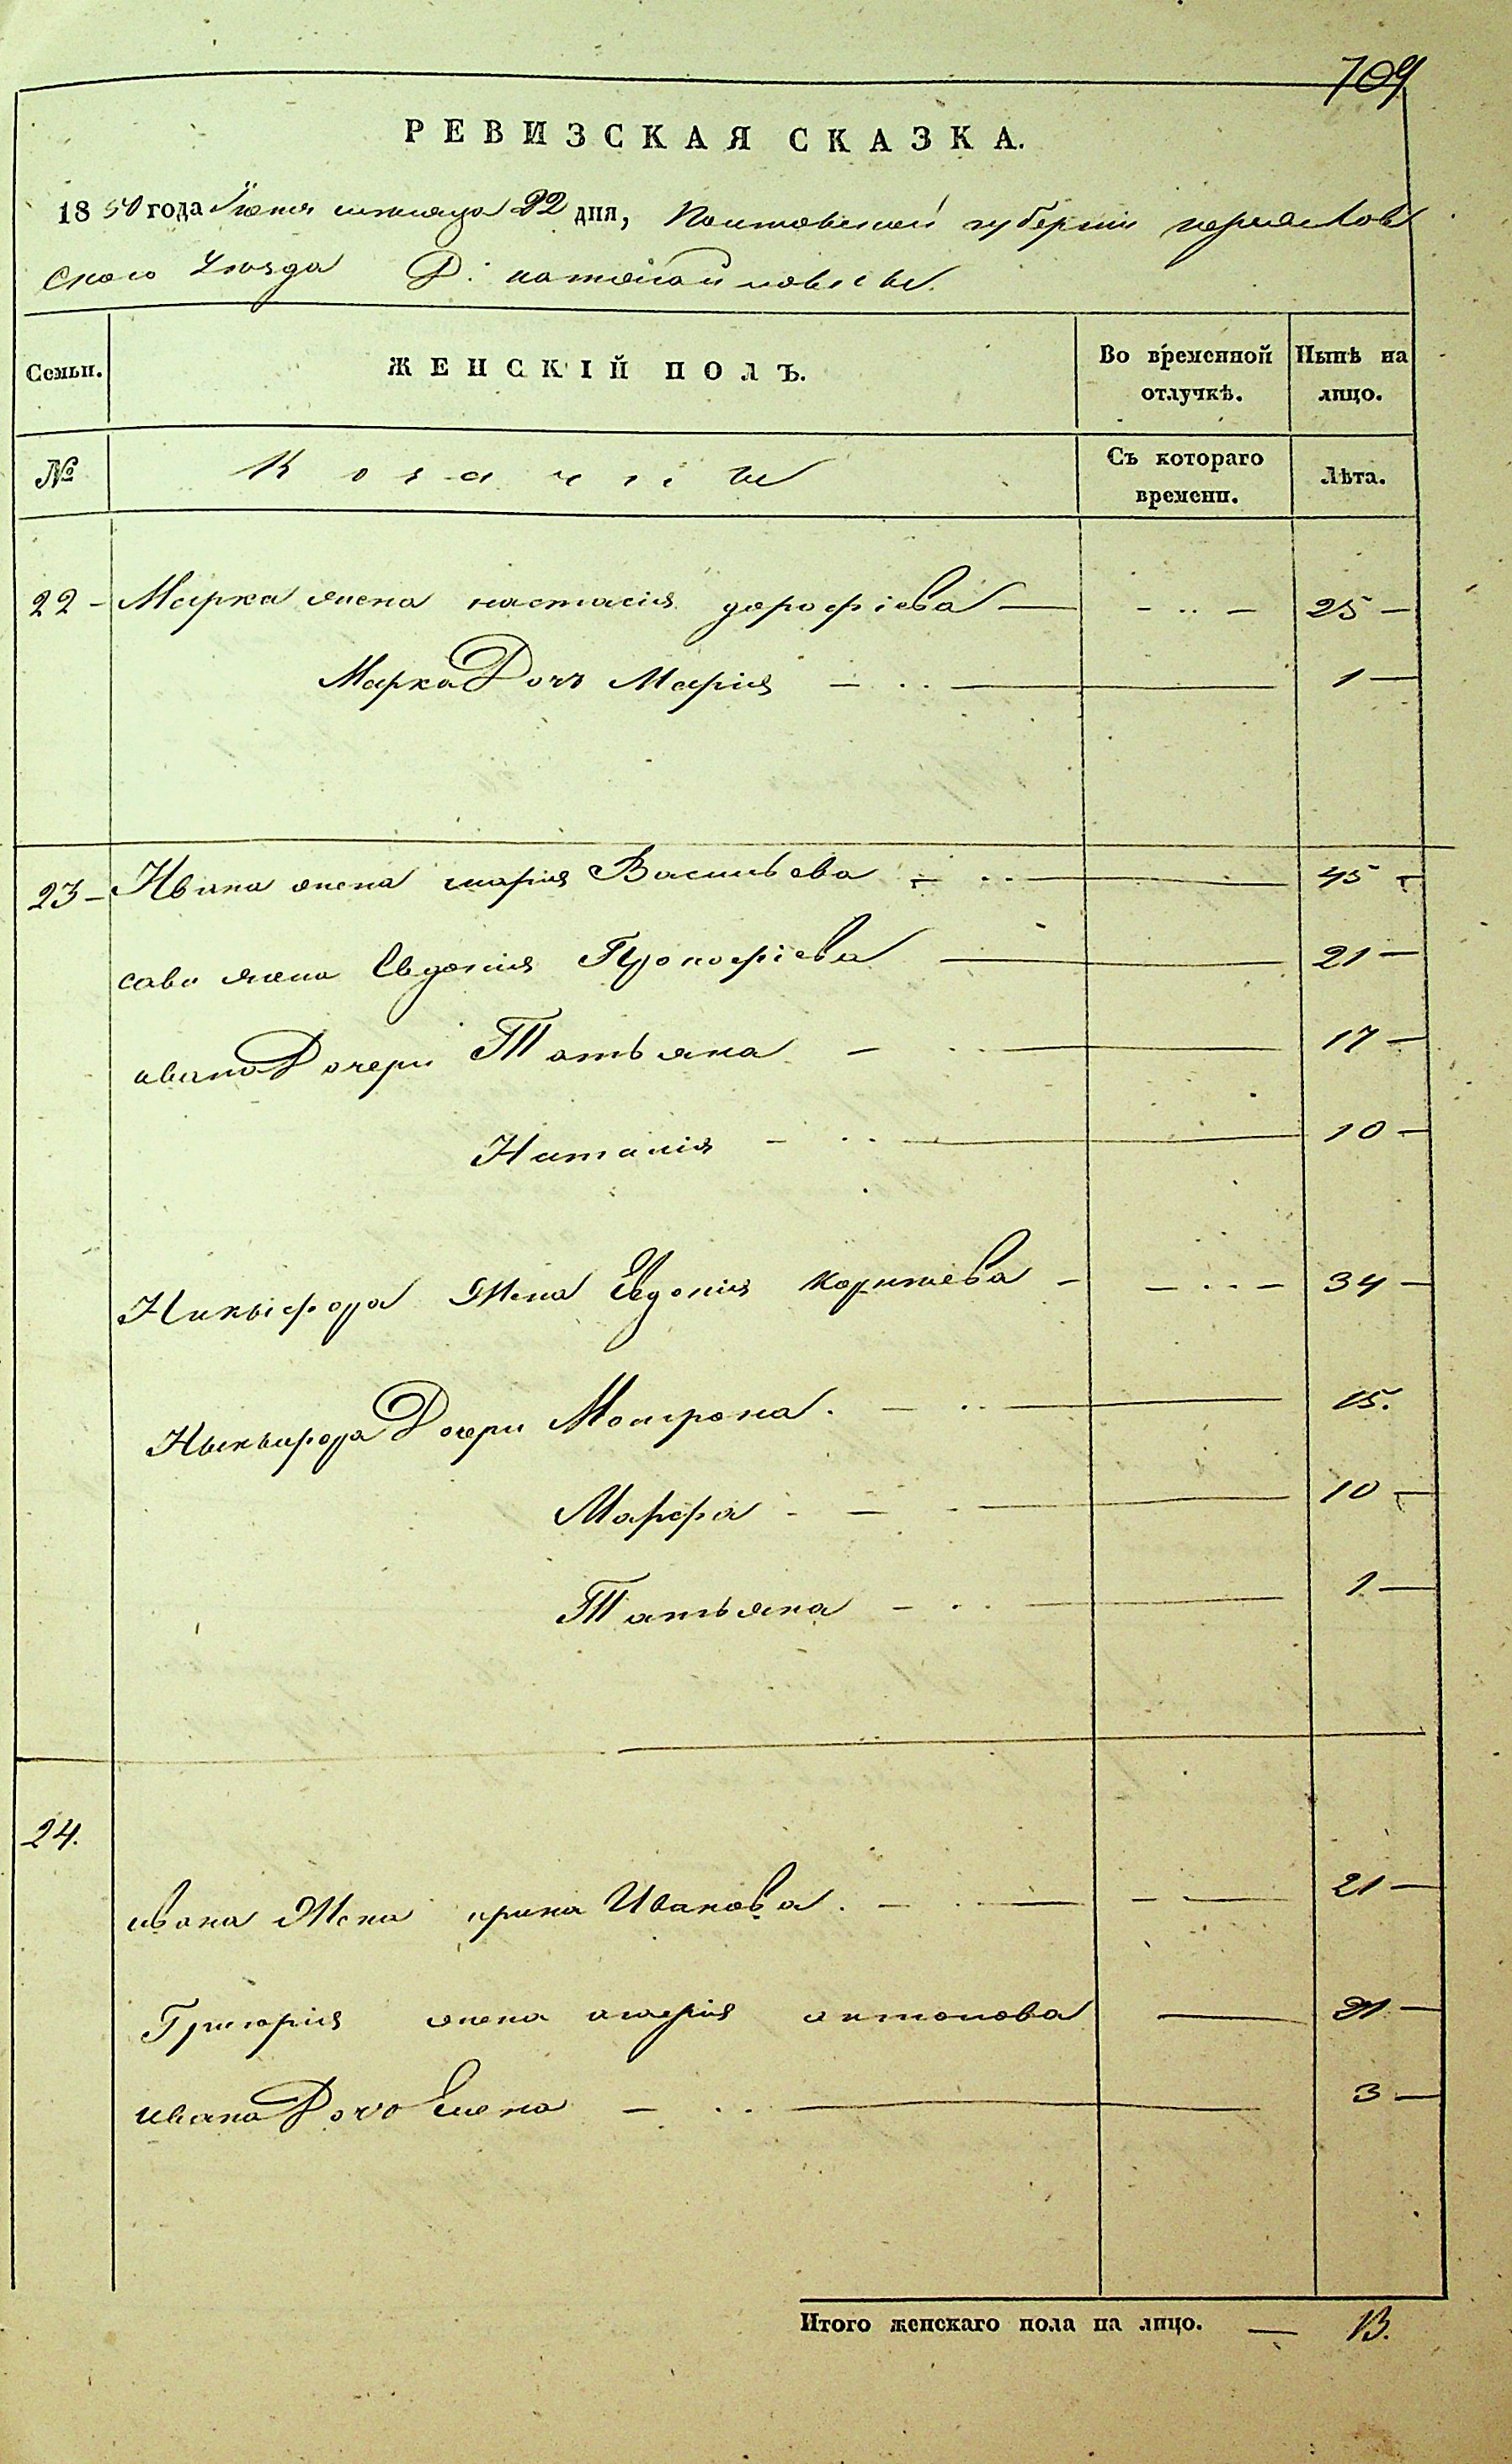 709
РЕВИЗСКАЯ СКАЗКА.
1850 года Іюня месяца 22 дня, Полтавской губерніи
ского уезда Д:
Семьи. ЖЕНСКІЙ ПОЛЪ. Во временной отлучкѣ. Нынѣ на лицо.
№ Козачіи Съ котораго времени. Лѣта.
22 - Марка жена настасія дорофіева — - .. — 25 —
Марка Дочъ Марія — .. — 1 —
23 - Ивана жена марія Васильева - .. — 45 -
сави жена Евдокія Прокофіева — 21 —
ивана Дочери Татьяна — .. — 17 —
Наталія - .. — 10 —
Никифора Жена Евдокія - — .. — 34 —
Никифора Дочери Мотрона. — .. — 15.
Марфа - — - — 10 —
Татьяна — .. — 1 —
24.
ивана Жена ирина Иванова. — . — — — 21 —
Григорія жена антонова — 21 —
ивана Дочь Елена — .. — 3 —
Итого женскаго пола на лицо. — 13.